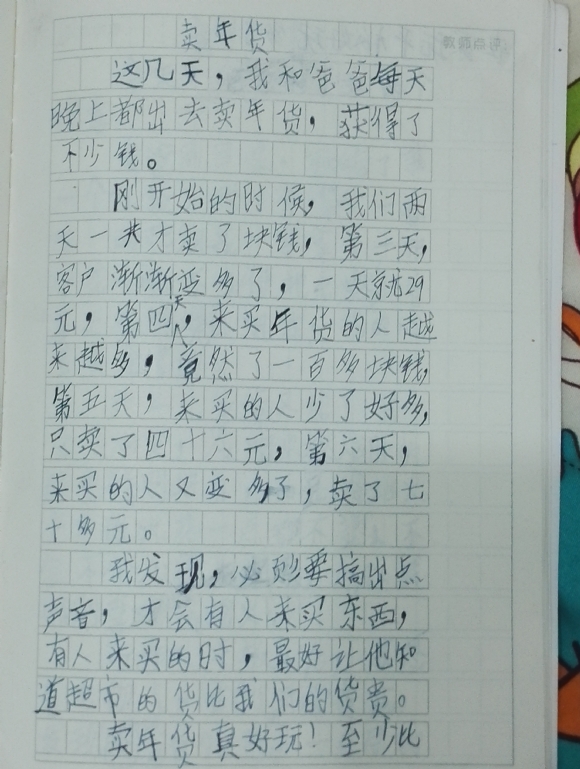 教师点评
卖年货
这几天，我和爸爸每天
晚上都出去卖年货，获得了
不少钱。
刚开始的时候，我们两
天一共才卖了块钱，第三天，
客户渐渐变多了，一天就29
元，第四天，来买年货的人越
来越多，竟然了一百多块钱，
第五天，来买的人少了好多，
只卖了四十六元，第六天，
来买的人又变多了，卖了七
十多元。
我发现，必须要搞出点
声音，才会有人来买东西，
有人来买的时，最好让他知
道超市的货比我们的货贵。
卖年货真好玩！至少比